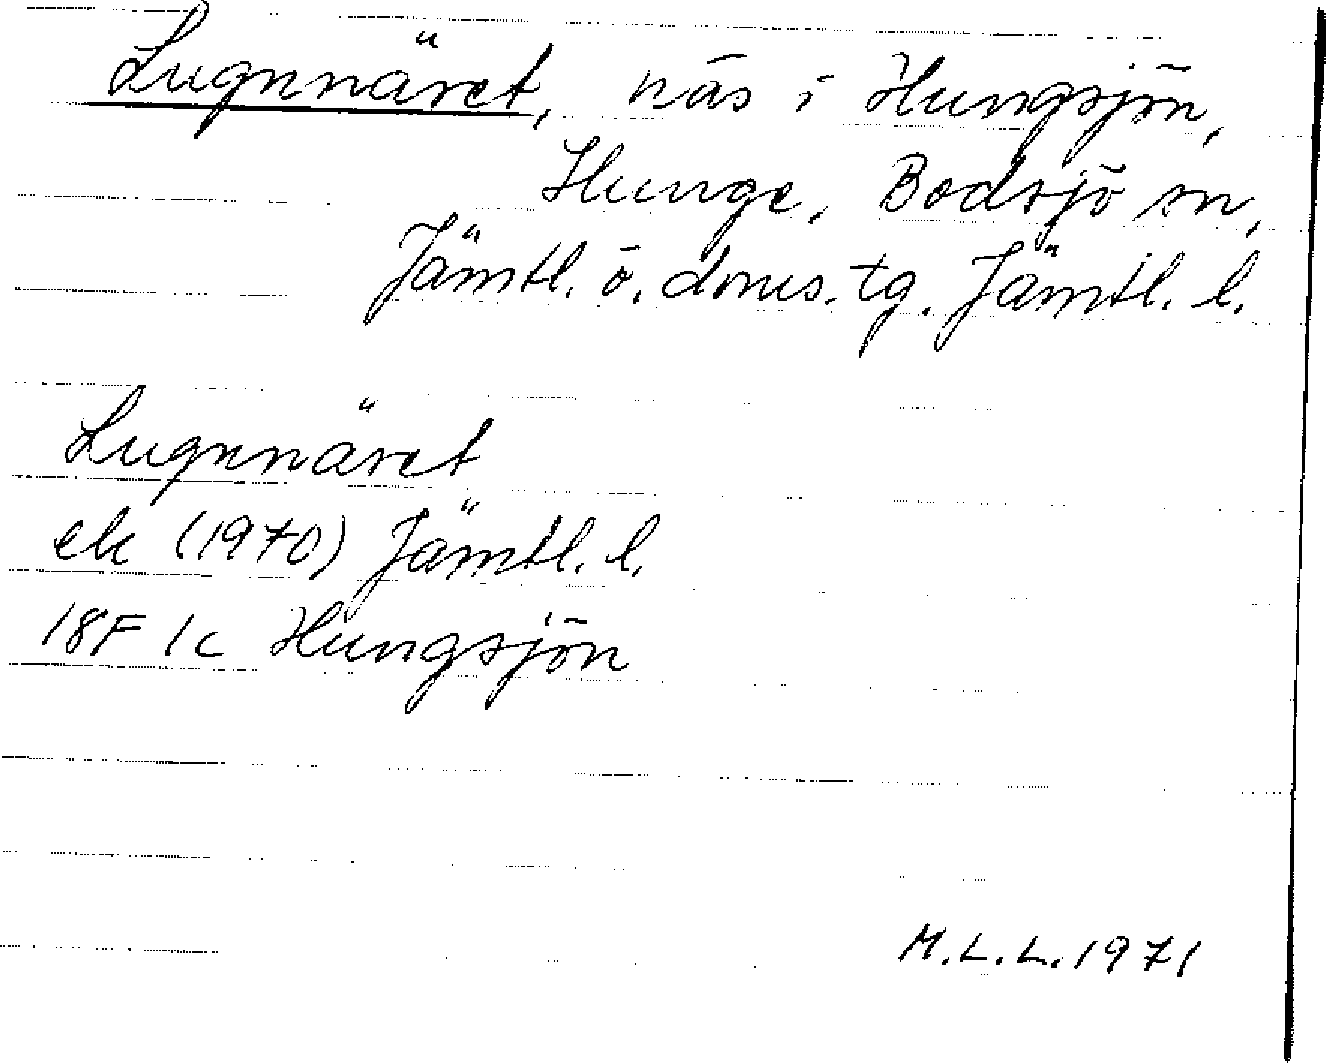 Lugnnäret, näs i Hungsjön,
Hunge, Bodsjö sn,
Jämtl. ö. doms. tg. Jämtl. l.
Lugnnäret
ek (1970) Jämtl. l.
18F 1c Hungsjön
M.L.L. 1971